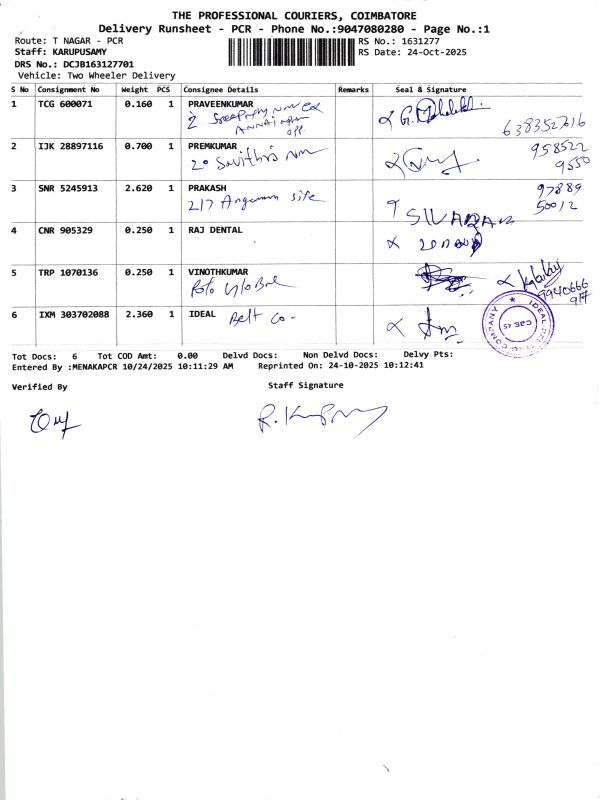 THE PROFESSIONAL COURIERS, COIMBATORE
Delivery Runsheet - PCR - Phone No.:9047080280 - Page No.:1
Route: T NAGAR - PCR
RS No.: 1631277
Staff: KARUPUSAMY
RS Date: 24-Oct-2025
DRS No.: DCJB163127701
Vehicle: Two Wheeler Delivery
S No Consignment No Weight PCS Consignee Details Remarks Seal & Signature
1 TCG 600071 0.160 1 PRAVEENKUMAR
2
off
6383527616
2 IJK 28897116 0.700 1 PREMKUMAR
20
958522
9550
3 SNR 5245913 2.620 1 PRAKASH
217 site
97889
50012
4 CNR 905329 0.250 1 RAJ DENTAL
5 TRP 1070136 0.250 1 VINOTHKUMAR
9940666
917
6 IXM 303702088 2.360 1 IDEAL Belt Co-
Tot Docs: 6 Tot COD Amt: 0.00 Delvd Docs: Non Delvd Docs: Delvy Pts:
Entered By :MENAKAPCR 10/24/2025 10:11:29 AM Reprinted On: 24-10-2025 10:12:41
Verified By
Staff Signature